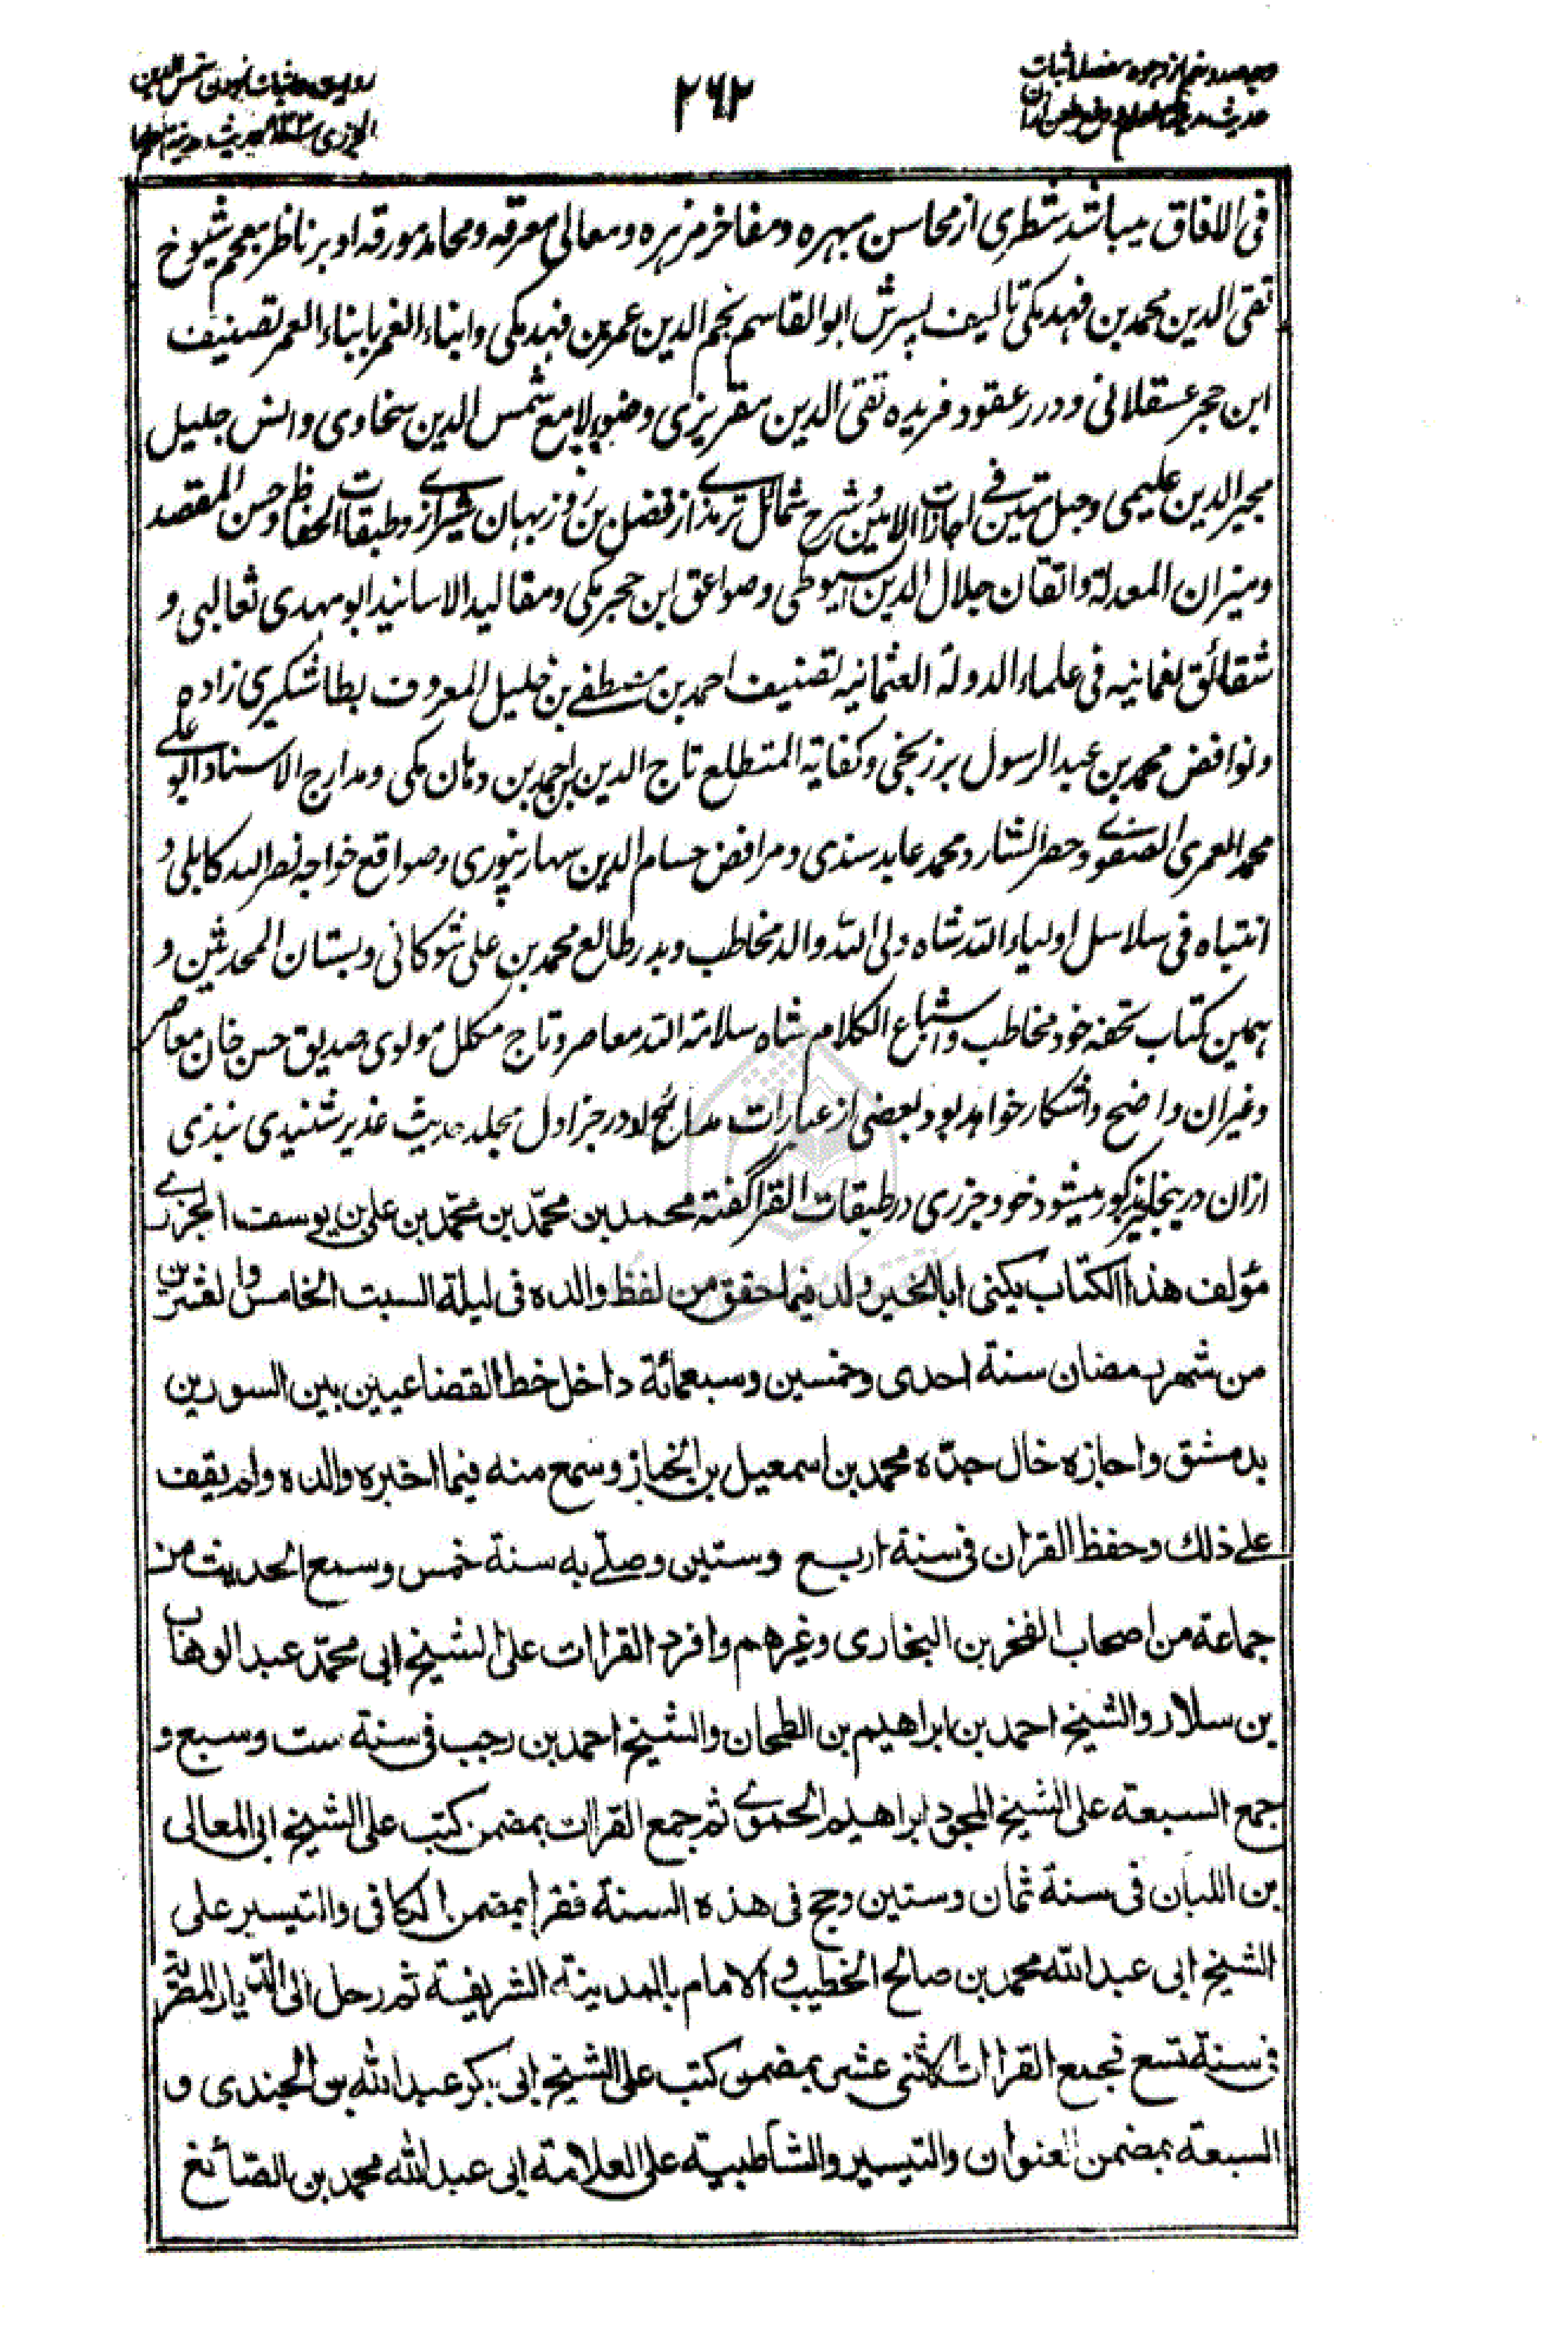 وجه صد و پنجم از وجوه مفصله اثبات
۲۶۲
فی الافاق میباشد شطری از محاسن مبهره و مفاخر مزهره و معالی معرقه و محامد مورقه او بر ناظر معجم شیوخ
تقی الدین محمد بن فهد مکی تالیف پسرش ابو القاسم نجم الدین عمر بن فهد مکی و انباء الغمر بابناء العمر تصنیف
ابن حجر عسقلانی و درر عقود فریده تقی الدین مقریزی و ضوء لامع شمس الدین سخاوی و انس جلیل
مجیر الدین علیمی و حبل متین فی اجازات الامین و شرح شمائل ترمذی از فضل بن روزبهان شیرازی و طبقات الحفاظ و حسن المقصد
و میزان المعدلة و اتقان جلال الدین سیوطی و صواعق ابن حجر مکی و مقالید الاسانید ابو مهدی ثعالبی و
شقائق نعمانیه فی علماء الدولة العثمانیه تصنیف احمد بن مصطفے بن خلیل المعروف بطاشکبری زاده
و نواقض محمد بن عبد الرسول برزنجی و کفایة المتطلع تاج الدین بن احمد بن دهان مکی و مدارج الاسناد ابو علی
محمد العمری الصفوی و حصر الشارد محمد عابد سندی و مرافض حسام الدین سهارنپوری و صواقع خواجه نصر الله کابلی و
انتباه فی سلاسل اولیاء الله شاه ولی الله والد مخاطب و بدر طالع محمد بن علی شوکانی و بستان المحدثین و
همین کتاب تحفه خود مخاطب و اشباع الکلام شاه سلامة الله معاصر و تاج مکلل مولوی صدیق حسن خان معاصر
و غیر ان واضح و اشکار خواهد بود و بعضی از عبارات مدائح او در جز اول مجلد حدیث غدیر شنیدی نبذی
ازان درینجا مذکور میشود خود جزری در طبقات القرا گفته محمد بن محمّد بن محمّد بن علی بن یوسف الجزرے
مؤلف هذا الکتاب یکنی ابا الخیر ولد فیما حقق من لفظ والده فی لیلة السبت الخامس و العشرین
من شهر رمضان سنة احدی و خمسین و سبعمائة داخل خط القضاعیین بین السورین
بدمشق و اجازه خال جدّه محمد بن اسمعیل بن الخباز و سمع منه فیما اخبره والده و لم یقف
علے ذلك و حفظ القران فی سنة اربع و ستین و صلّے به سنة خمس و سمع الحدیث من
جماعة من اصحاب الفخر بن البخاری و غیرهم و افرد القرات علی الشیخ ابی محمّد عبد الوهاب
بن سلار و الشیخ احمد بن ابراهیم بن الطحان و الشیخ احمد بن رجب فی سنة ست و سبع و
جمع السبعة علی الشیخ المجود ابراهیم الحموے ثم جمع القرات بمضمن کتب علی الشیخ ابی المعالی
بن اللبان فی سنة ثمان و ستین و حج فی هذه السنة فقرا بمضمن الکافی و التیسیر علی
الشیخ ابی عبد الله محمد بن صالح الخطیب و الامام بالمدینة الشریفة ثم رحل الی الدّیار المصریّة
فی سنة تسع فجمع القرات الاثنی عشر بمضمن کتب علی الشیخ ابی بکر عبد الله بن الجندی و
السبعة بمضمن العنوان و التیسیر و الشاطبیة علی العلامة ابی عبد الله محمد بن الصّائغ